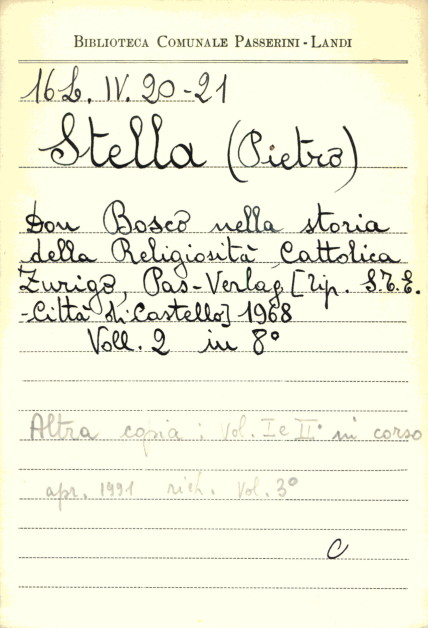 BIBLIOTECA COMUNALE PASSERINI-LANDI
16L. IV. 20-21
Stella (Pietro)
Don Bosco nella storia
della Religiosità Cattolica
Zurigo, Pas-Verlag, [tip. S.T.E.
-Città di Castello] 1968
Voll. 2 in 8°
Altra copia: Vol. I e II° in corso
apr. 1991 rich. Vol. 3°
C